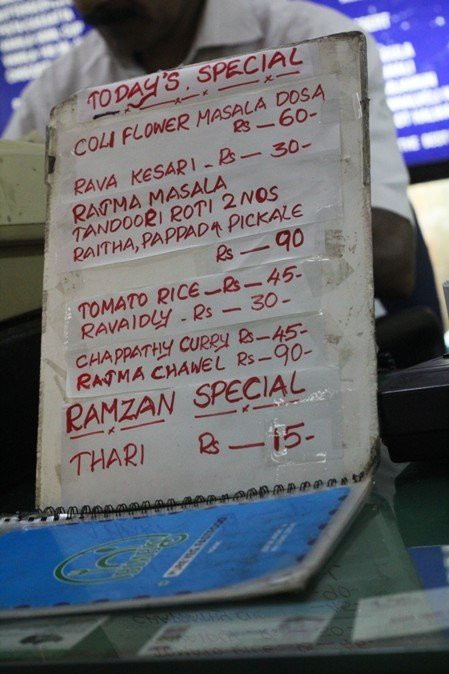 TODAY'S SPECIAL
COLI FLOWER MASALA DOSA
RS — 60-
RAVA KESARI - RS — 30-
RAJMA MASALA
TANDOORI ROTI 2NOS
RAITHA, PAPPAD & PICKALE
RS — 90
TOMATO RICE — RS — 45-
RAVAIDLY - RS — 30-
CHAPPATHY CURRY RS - 45-
RAJMA CHAWEL RS - 90-
RAMZAN SPECIAL
THARI RS — 15-